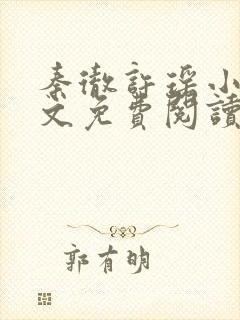 秦徹許瑶小
文免費閱讀
郭有明